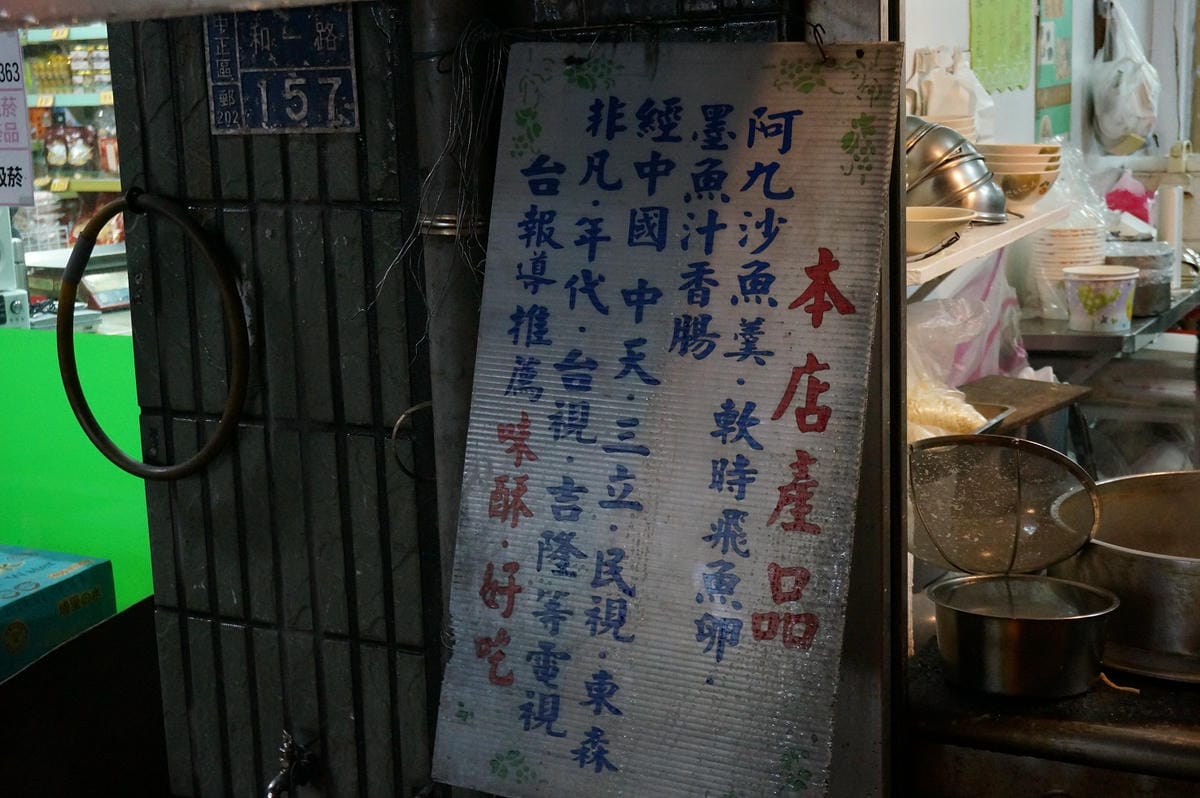 本店產品
阿九沙魚羹．軟時飛魚卵．
墨魚汁香腸
經中國 中天．三立．民視．東森
非凡．年代．台視．吉隆等電視
台報導推薦 味酥．好吃
中正區
和一路
郵202
157
363
吸菸